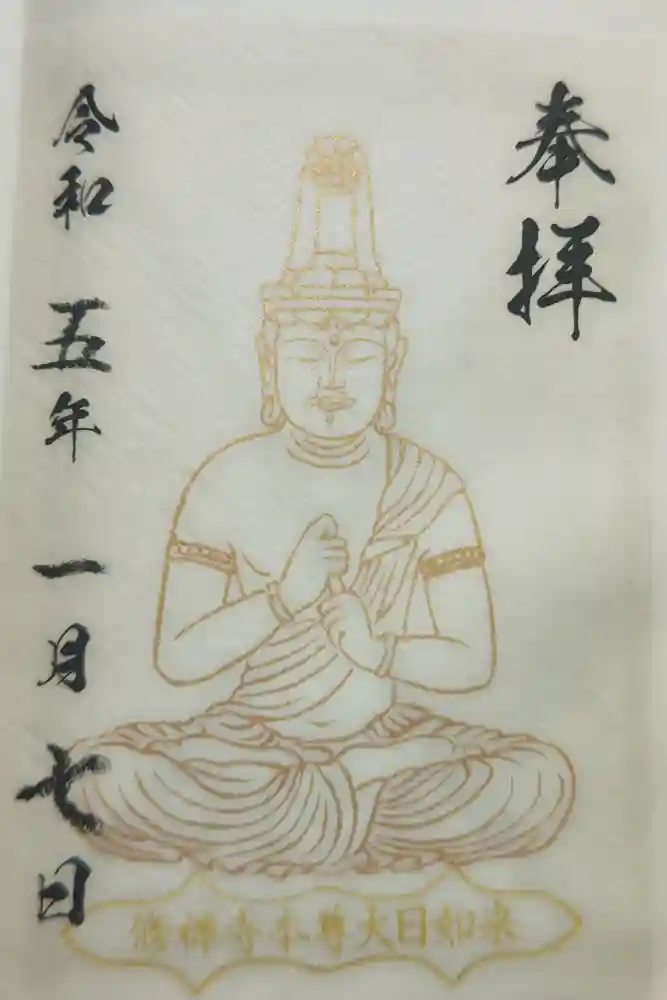 奉拝
令和五年一月七日
修禅寺本尊大日如来